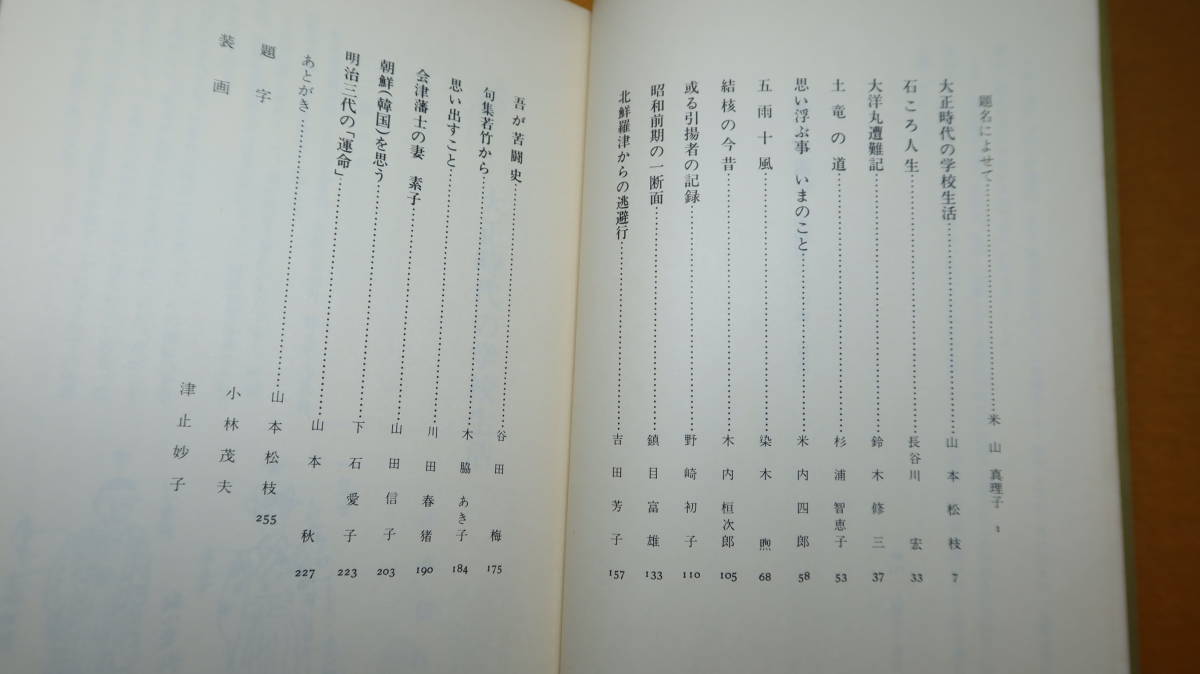 題名によせて……………………米山真理子 1
大正時代の学校生活……………………山本松枝 7
石ころ人生……………………長谷川宏 33
大洋丸遭難記……………………鈴木修三 37
土竜の道……………………杉浦智恵子 53
思い浮ぶ事 いまのこと……………………米内四郎 58
五雨十風……………………染木煦 68
結核の今昔……………………木内桓次郎 105
或る引揚者の記録……………………野崎初子 110
昭和前期の一断面……………………鎮目富雄 133
北鮮羅津からの逃避行……………………吉田芳子 157
吾が苦闘史……………………谷田梅 175
句集若竹から……………………木脇あき子 184
思い出すこと……………………川田春猪 190
会津藩士の妻 素子……………………山田信子 203
朝鮮(韓国)を思う……………………下石愛子 223
明治三代の「運命」……………………山本秋 227
あとがき……………………山本松枝 255
題字 小林茂夫
装画 津止妙子